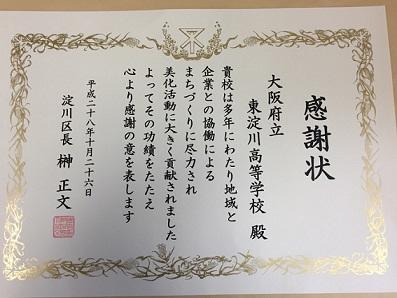 感謝状
大阪府立
東淀川高等学校 殿
貴校は多年にわたり地域と
企業との協働による
まちづくりに尽力され
美化活動に大きく貢献されました
よってその功績をたたえ
心より感謝の意を表します
平成二十八年十月二十六日
淀川区長 榊 正文